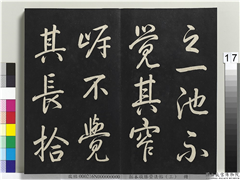 之一池不
覺其窄
不覺
其長拾
17